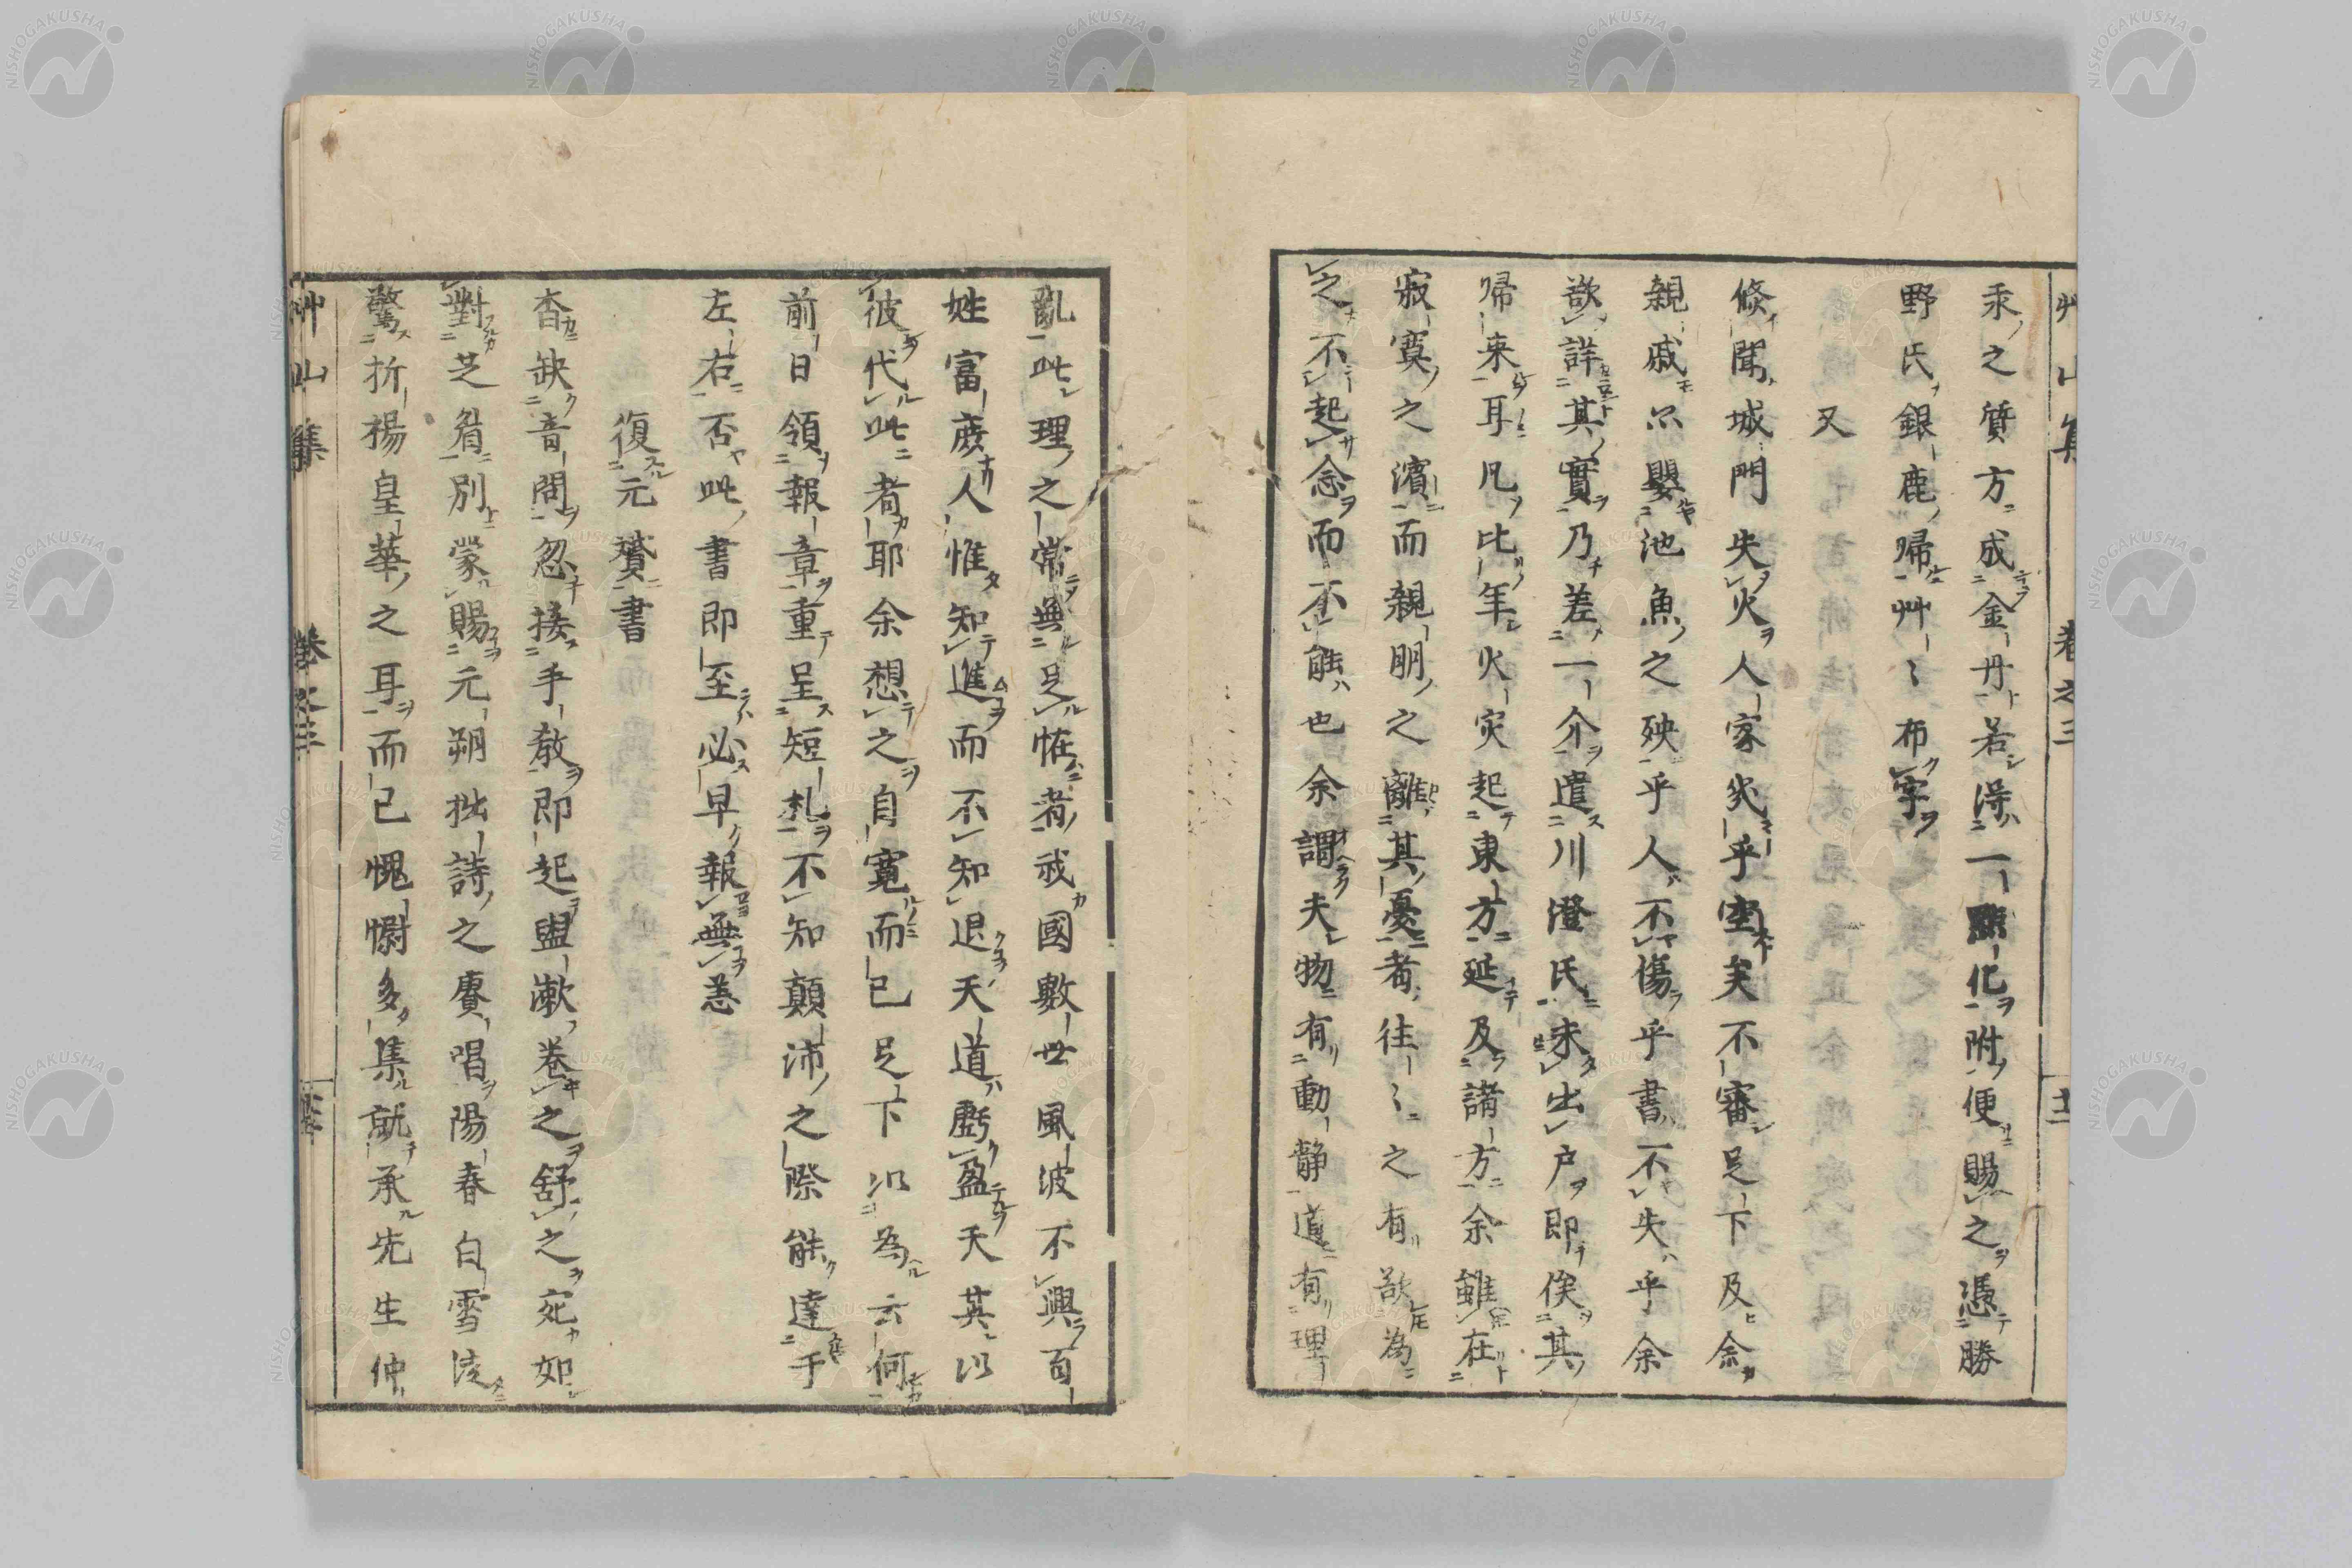 艸山集 卷之三
汞之質方成金丹若得一點化附便賜之憑勝
野氏銀鹿歸艸〻布字
又
倏聞城門失火人家災乎空矣不審足下及余
親戚亦嬰池魚之殃乎人不傷乎書不失乎余
欲詳其實乃差一介遣川澄氏未出戸即俟其
帰来耳凡比年火災起東方延及諸方余雖在
寂寞之濱而親朋之離其憂者往〻之有欲為
之不起念而不能也余謂夫物有動静道有理
亂此理之常無足恠者戒國數世風波不興百
姓富庶人惟知進而不知退天道虧盈天英以
彼代此者耶余想之自寛而已足下以為云何
前日領報章重呈短札不知顛沛之際能達于
左右否此書即至必早報無恙
復元贇書
杳缺音問忽接手教即起盥漱卷之舒之宛如
對芝眉別蒙賜元朔拙詩之賡唱陽春白雪淩
驚折楊皇華之耳而已愧懰多集就承先生仲
艸山集 卷之三